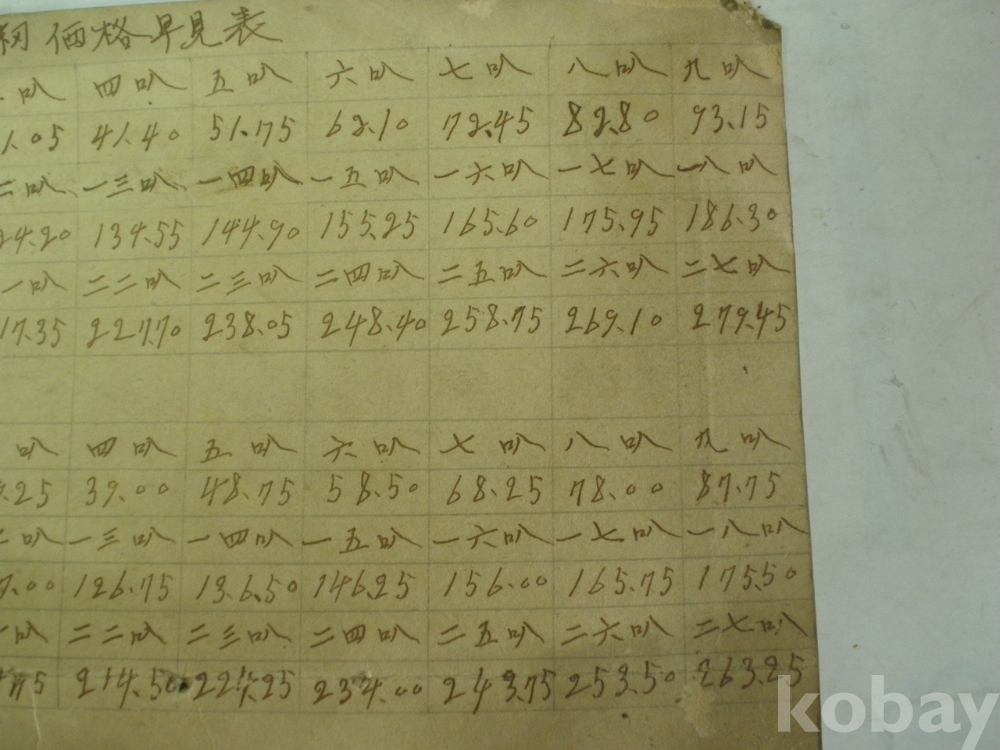 価格早見表
叭 四叭 五叭 六叭 七叭 八叭 九叭
1.05 41.40 51.75 62.10 72.45 82.80 93.15
二叭 一三叭 一四叭 一五叭 一六叭 一七叭 一八叭
24.20 134.55 144.90 155.25 165.60 175.95 186.30
一叭 二二叭 二三叭 二四叭 二五叭 二六叭 二七叭
17.35 227.70 238.05 248.40 258.75 269.10 279.45
叭 四叭 五叭 六叭 七叭 八叭 九叭
.25 39.00 48.75 58.50 68.25 78.00 87.75
二叭 一三叭 一四叭 一五叭 一六叭 一七叭 一八叭
7.00 126.75 136.50 146.25 156.00 165.75 175.50
一叭 二二叭 二三叭 二四叭 二五叭 二六叭 二七叭
75 214.50 224.25 234.00 243.75 253.50 263.25
kobay